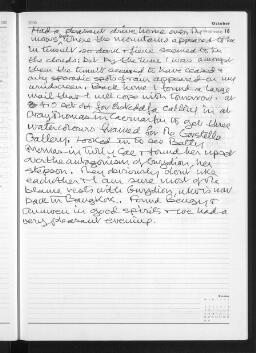 October
16
Had a pleasant drive home over the
moors where the mountains appeared to be
in tumult so dark & fierce seemed to be
the clouds: but by the time I was amongst
them the tumult seemed to have ceased &
only sporadic spots of rain appeared on my
windscreen. Back home I found a large
mail that I will cope with tomorrow. at
set off for & called in at
Thomas in Caernarfon to get three
watercolours framed for the
Gallery. Looked in to see Betty
in & found her upset
over the antagonism of Gwydion, her
stepson. They obviously don't like
each other & I am sure most of the
blame rests with Gwydion, who is now
back in Bangkok. Found &
in good spirits & we had a
very pleasant evening.